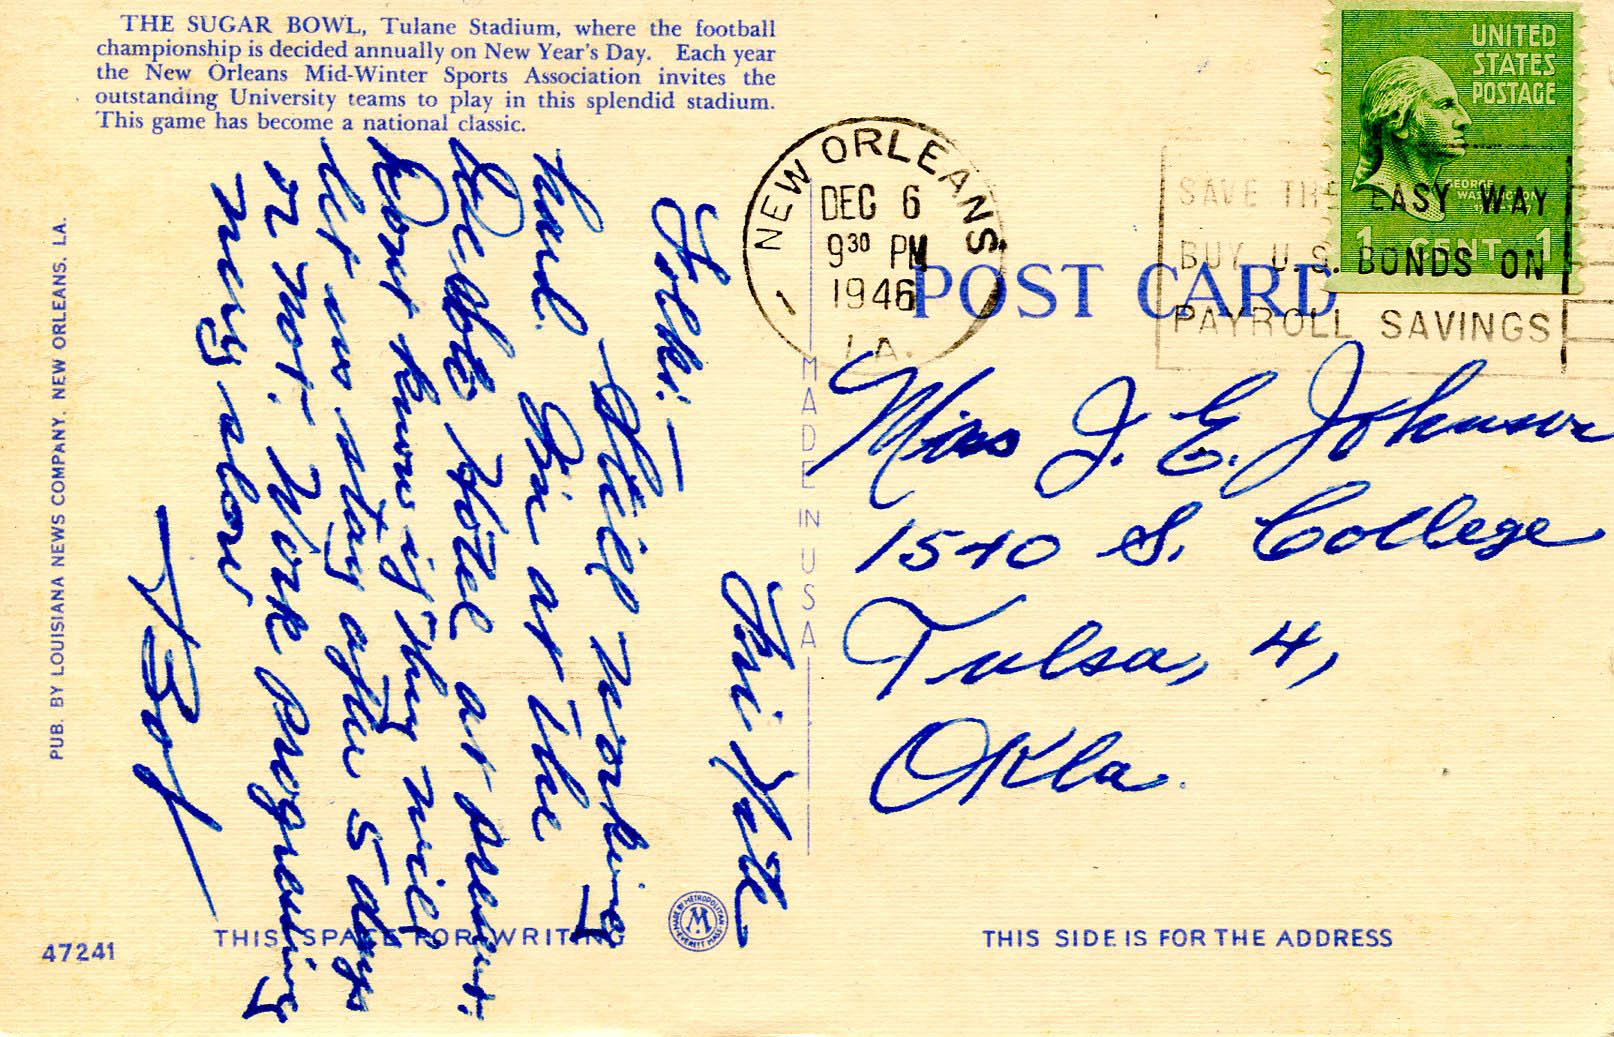 THE SUGAR BOWL, Tulane Stadium, where the football
championship is decided annually on New Year's Day. Each year
the New Orleans Mid-Winter Sports Association invites the
outstanding University teams to play in this splendid stadium.
This game has become a national classic.
UNITED
STATES
POSTAGE
GEORGE
WASHINGTON
1 CENT 1
NEW ORLEANS
DEC 6
9 30 PM
1946
LA.
1
SAVE THE EASY WAY
BUY U.S. BONDS ON
PAYROLL SAVINGS
POST CARD
MADE IN USA
Fri Nite
Folks: —
Still working
hard. I'm at the
De Soto Hotel at present.
Don't know if they will
let us stay after 5 days
or not. Work progressing
very slow
Bob
Miss J. E. Johnson
1540 S. College
Tulsa, 4,
Okla.
PUB. BY LOUISIANA NEWS COMPANY, NEW ORLEANS, LA.
47241
THIS SPACE FOR WRITING
MADE BY METROPOLITAN
M
EVERETT MASS
THIS SIDE IS FOR THE ADDRESS